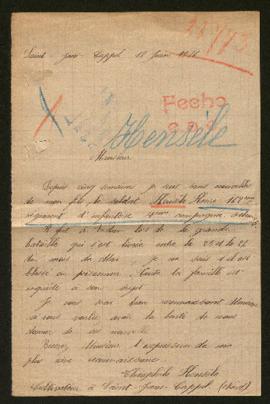 Saint - Jans - Cappel 18 Juin 1916
Fecho
Hensèle
Monsieur
Depuis cinq semaines je suis sans nouvelle
de mon fils le soldat Henséle Remi 162ème
régiment d'infanterie 4ème compagnie
Il fut à Verdun lors de la grande
bataille qui s'est livrée entre le 21 et le 22
du mois de Mai. Je ne sais s'il est
blessé ou prisonnier. Toute la famille est
inquiète à son sujet.
Je vous serai bien reconnaissant Monsieur
si vous vouliez avoir la bonté de nous
donner de ses nouvelles
Recevez Monsieur l'expression de ma
plus vive reconnaissance.
Théophile Henséle
Cultivateur à Saint-Jans-Cappel (Nord)